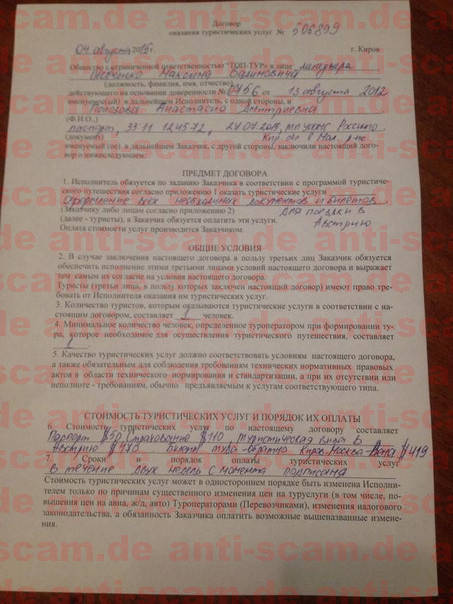 Договор
оказания туристических услуг № 506899
04 августа 2015г. г. Киров
Общество с ограниченной ответственностью "ТОП-ТУР" в лице менеджера
Максима Вадимовича
(должность, фамилия, имя, отчество)
действующего на основании доверенности № 0456 от 13 августа 2012
именуемый(ое) в дальнейшем Исполнитель, с одной стороны, и
Анастасия Дмитриевна
(Ф.И.О.)
паспорт, 33 11 124572, 24.07.2011,
(документ)
именуемый (ое) в дальнейшем Заказчик, с другой стороны, заключили настоящий дого-
вор о нижеследующем:
ПРЕДМЕТ ДОГОВОРА
1. Исполнитель обязуется по заданию Заказчика в соответствии с программой туристиче-
ского путешествия согласно приложению 1 оказать туристические услуги
Оформление всех необходимых документов и билетов
(Заказчику либо лицам согласно приложению 2) для поездки в
(далее - туристы), а Заказчик обязуется оплатить эти услуги. Австрию
Оплата стоимости услуг производится Заказчиком
ОБЩИЕ УСЛОВИЯ
2. В случае заключения настоящего договора в пользу третьих лиц Заказчик обязуется
обеспечить исполнение этими третьими лицами условий настоящего договора и выражает
тем самым их согласие на условия настоящего договора.
Туристы (третьи лица, в пользу которых заключен настоящий договор) имеют право тре-
бовать от Исполнителя оказания им туристических услуг.
3. Количество туристов, которым оказываются туристические услуги в соответствии с на-
стоящим договором, составляет 1 человек.
4. Минимальное количество человек, определенное туроператором при формировании ту-
ра, которое необходимое для осуществления туристического путешествия, составляет
1
5. Качество туристических услуг должно соответствовать условиям настоящего договора,
а также обязательным для соблюдения требованиям технических нормативных правовых
актов в области технического нормирования и стандартизации, а при их отсутствии или
неполноте - требованиям, обычно предъявляемым к услугам соответствующего типа.
СТОИМОСТЬ ТУРИСТИЧЕСКИХ УСЛУГ И ПОРЯДОК ИХ ОПЛАТЫ
6. Стоимость туристических услуг по настоящему договору составляет
Паспорт $90 Страхование $110 Туристическая виза в
Австрию Билет туда-обратно Киров-Москва-Вена $419
7. Сроки и порядок оплаты туристических услуг
в течение двух недель с момента подписания
Стоимость туристических услуг может в одностороннем порядке быть изменена Исполни-
телем только по причинам существенного изменения цен на туруслуги (в том числе, по-
вышения цен на авиа, ж/д, авто) Туроператорами (Перевозчиками), изменения налогового
законодательства, а обязанность Заказчика оплатить возможные вышеназванные измене-
ния.
anti-scam.de